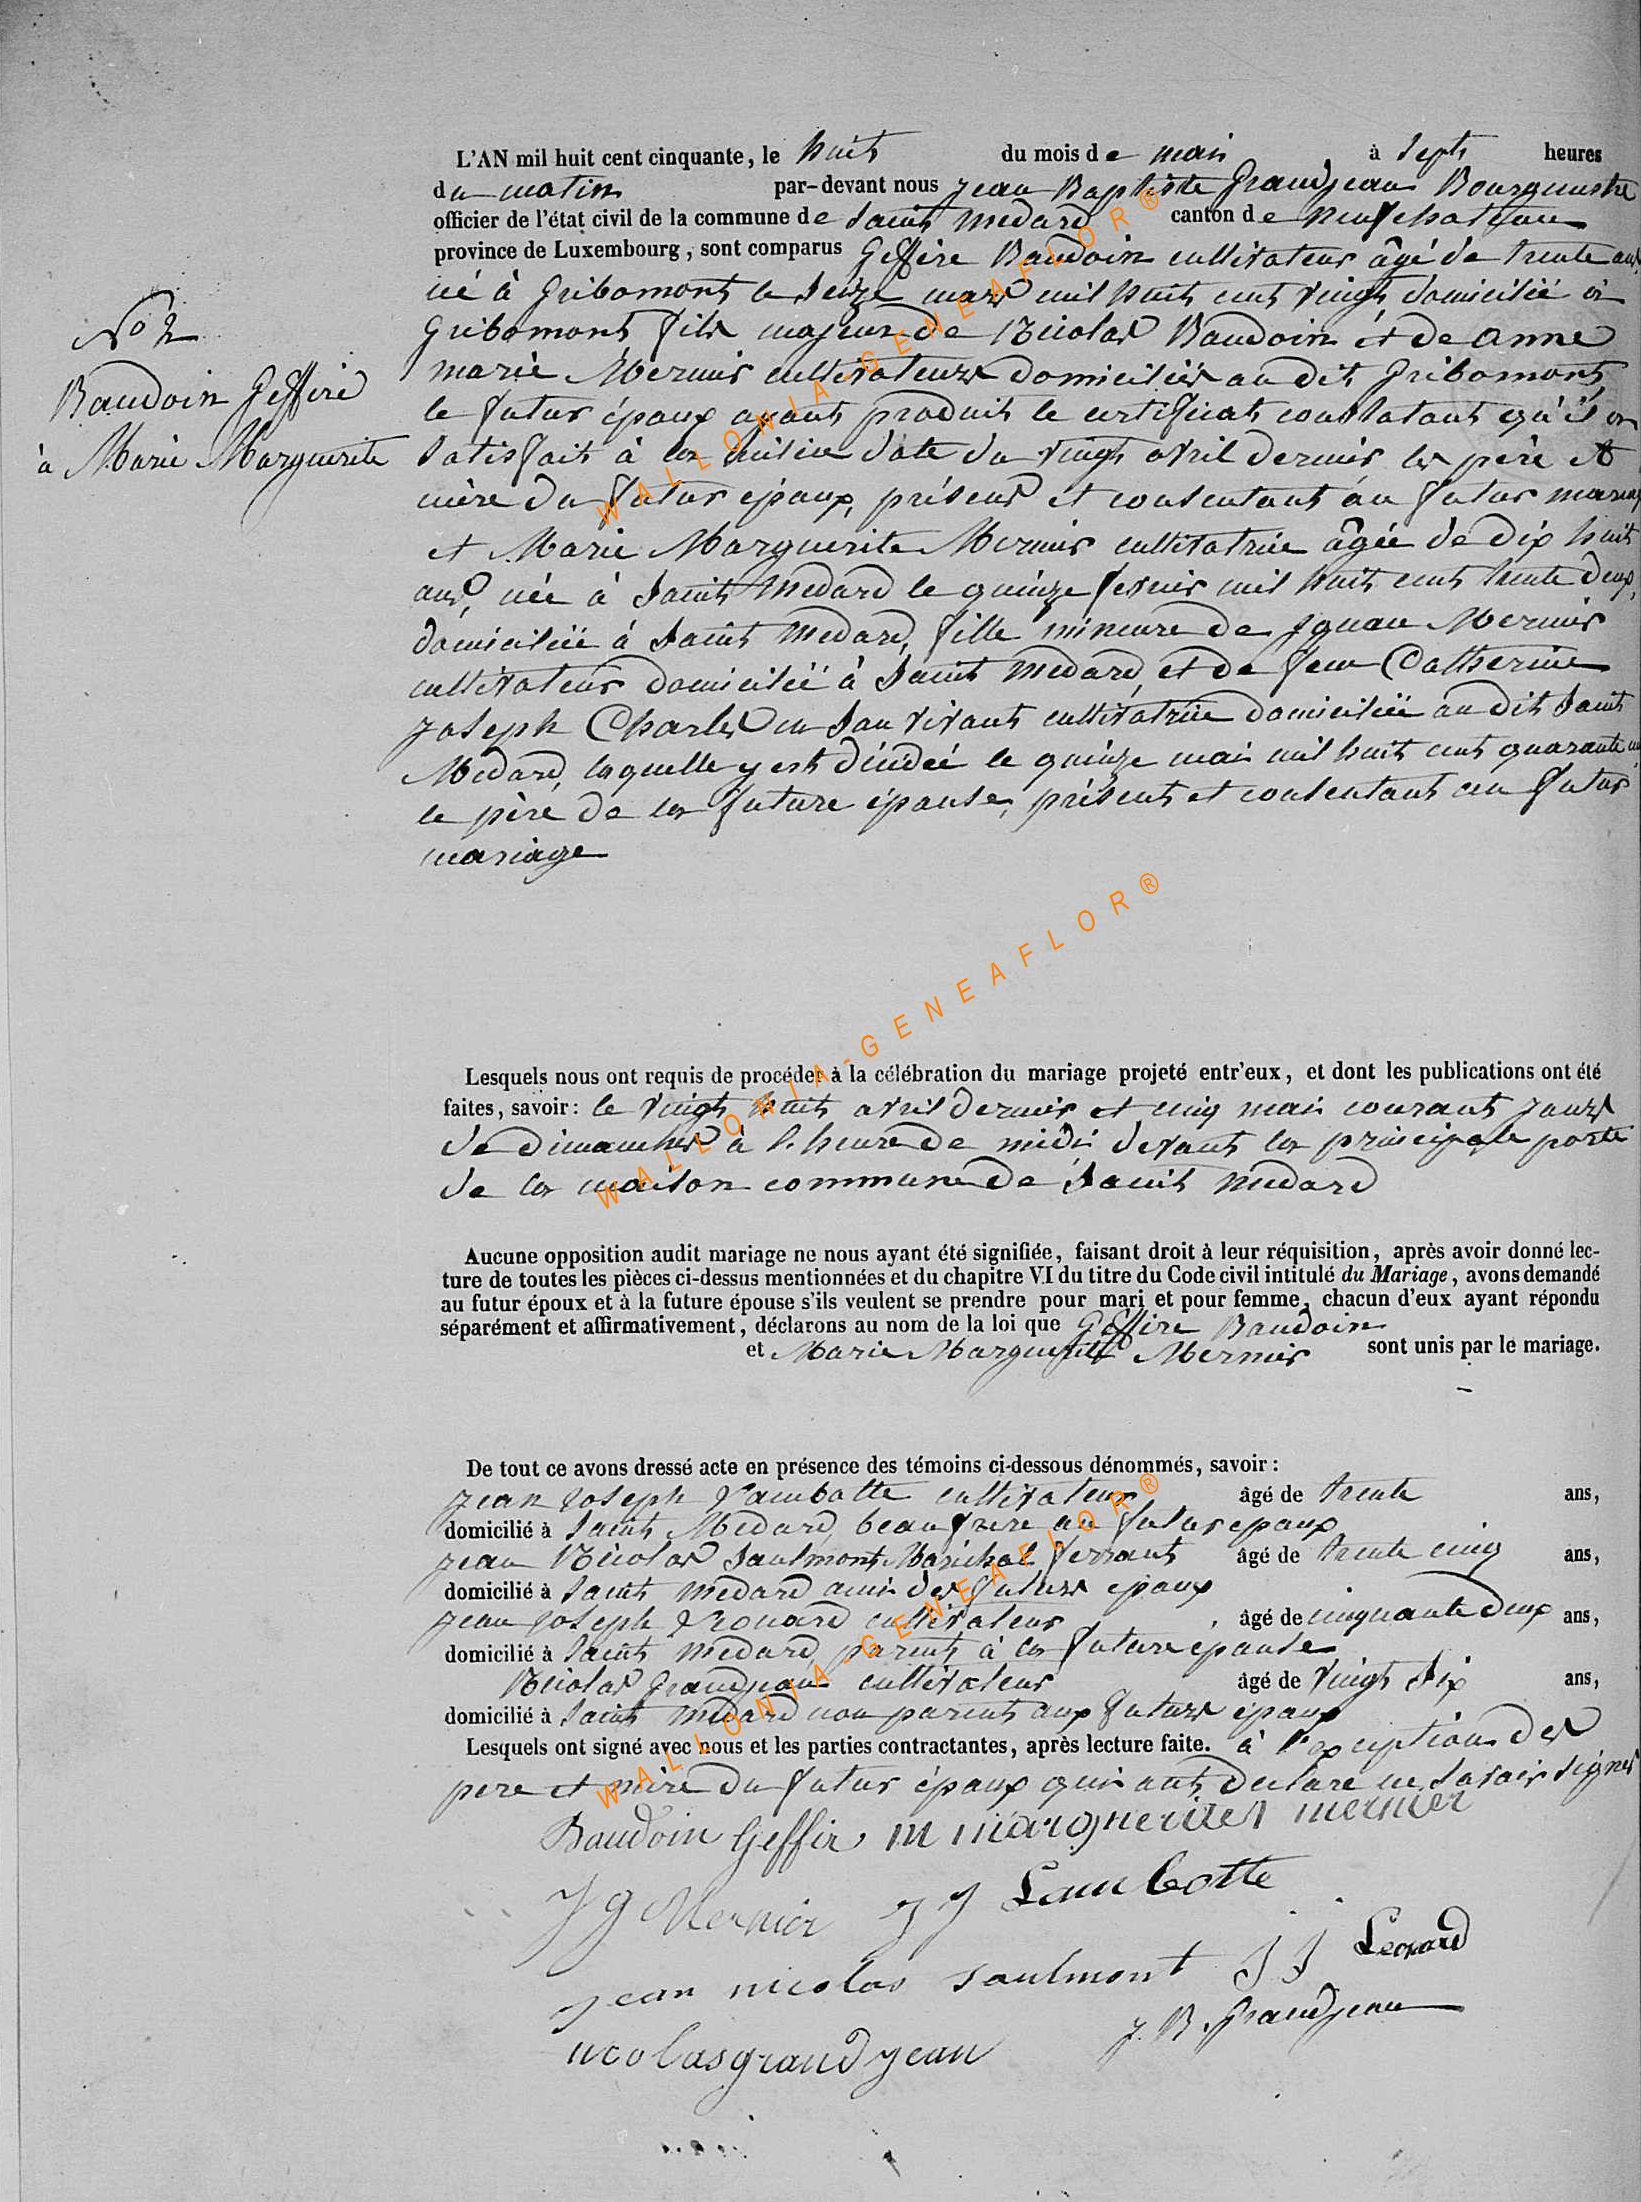 L'AN mil huit cent cinquante, le huit du mois de mai à sept heures
du matin par-devant nous jean Baptiste grandjean Bourgmestre
officier de l'état civil de la commune de saint medard canton de neufchateau
province de Luxembourg, sont comparus Geffire Baudoin cultivateur âgé de trente ans
né à gribomont le seize mars mil huit cent vingt domicilié à
gribomont fils majeur de Nicolas Baudoin et de anne
marie Mernier cultivateurs domiciliés au dit gribomont
le futur époux ayant produit le certificat constatant qu'il a
satisfait à la milice date du vingt avril dernier les père et
mère du futur époux, présens et consentant au futur mariage
No 2
Baudoin Geffire
à Marie Marguerite
et Marie Marguerite Mernier cultivatrice âgée de dix huit
ans, née à saint medard le quinze fevrier mil huit cent trente deux,
domiciliée à saint medard, fille mineure de Mernier
cultivateur domicilié à saint medard, et de feue Catherine
joseph Charles en son vivant cultivatrice domiciliée au dit saint
Medard, laquelle y est décédée le quinze mai mil huit cent quarante
le père de la future épouse, présent et consentant au futur
mariage
Lesquels nous ont requis de procéder à la célébration du mariage projeté entr'eux, et dont les publications ont été
faites, savoir: le vingt huit avril dernier et cinq mai courant jours
de dimanches à l'heure de midi devant la principale porte
de la maison commune de saint medard
Aucune opposition audit mariage ne nous ayant été signifiée, faisant droit à leur réquisition, après avoir donné lec-
ture de toutes les pièces ci-dessus mentionnées et du chapitre VI du titre du Code civil intitulé du Mariage, avons demandé
au futur époux et à la future épouse s'ils veulent se prendre pour mari et pour femme, chacun d'eux ayant répondu
séparément et affirmativement, déclarons au nom de la loi que Geffire Baudoin
et Marie Marguerite Mernier sont unis par le mariage.
De tout ce avons dressé acte en présence des témoins ci-dessous dénommés, savoir:
jean joseph Lambotte cultivateur âgé de trente ans,
domicilié à saint Medard, beau frere au futur epoux
jean Nicolas Saulmont Maréchal ferrant âgé de trente cinq ans,
domicilié à saint medard ami des futurs epoux
jean joseph Leonard cultivateur âgé de cinquante deux ans,
domicilié à saint medard, parent à la future épouse
Nicolas grandjean cultivateur âgé de vingt six ans,
domicilié à saint medard non parent aux futurs epoux
Lesquels ont signé avec nous et les parties contractantes, après lecture faite. à l'exception des
pere et mère du futur époux qui ont declare ne savoir signer
Baudoin Geffir m marguerites mernier
J J Lambotte
J g Mernier
jean nicolas saulmont J J Leonard
J. B. grandjean
nicolas grandjean
WALLONIA-GENEAFLOR®
WALLONIA-GENEAFLOR®
WALLONIA-GENEAFLOR®